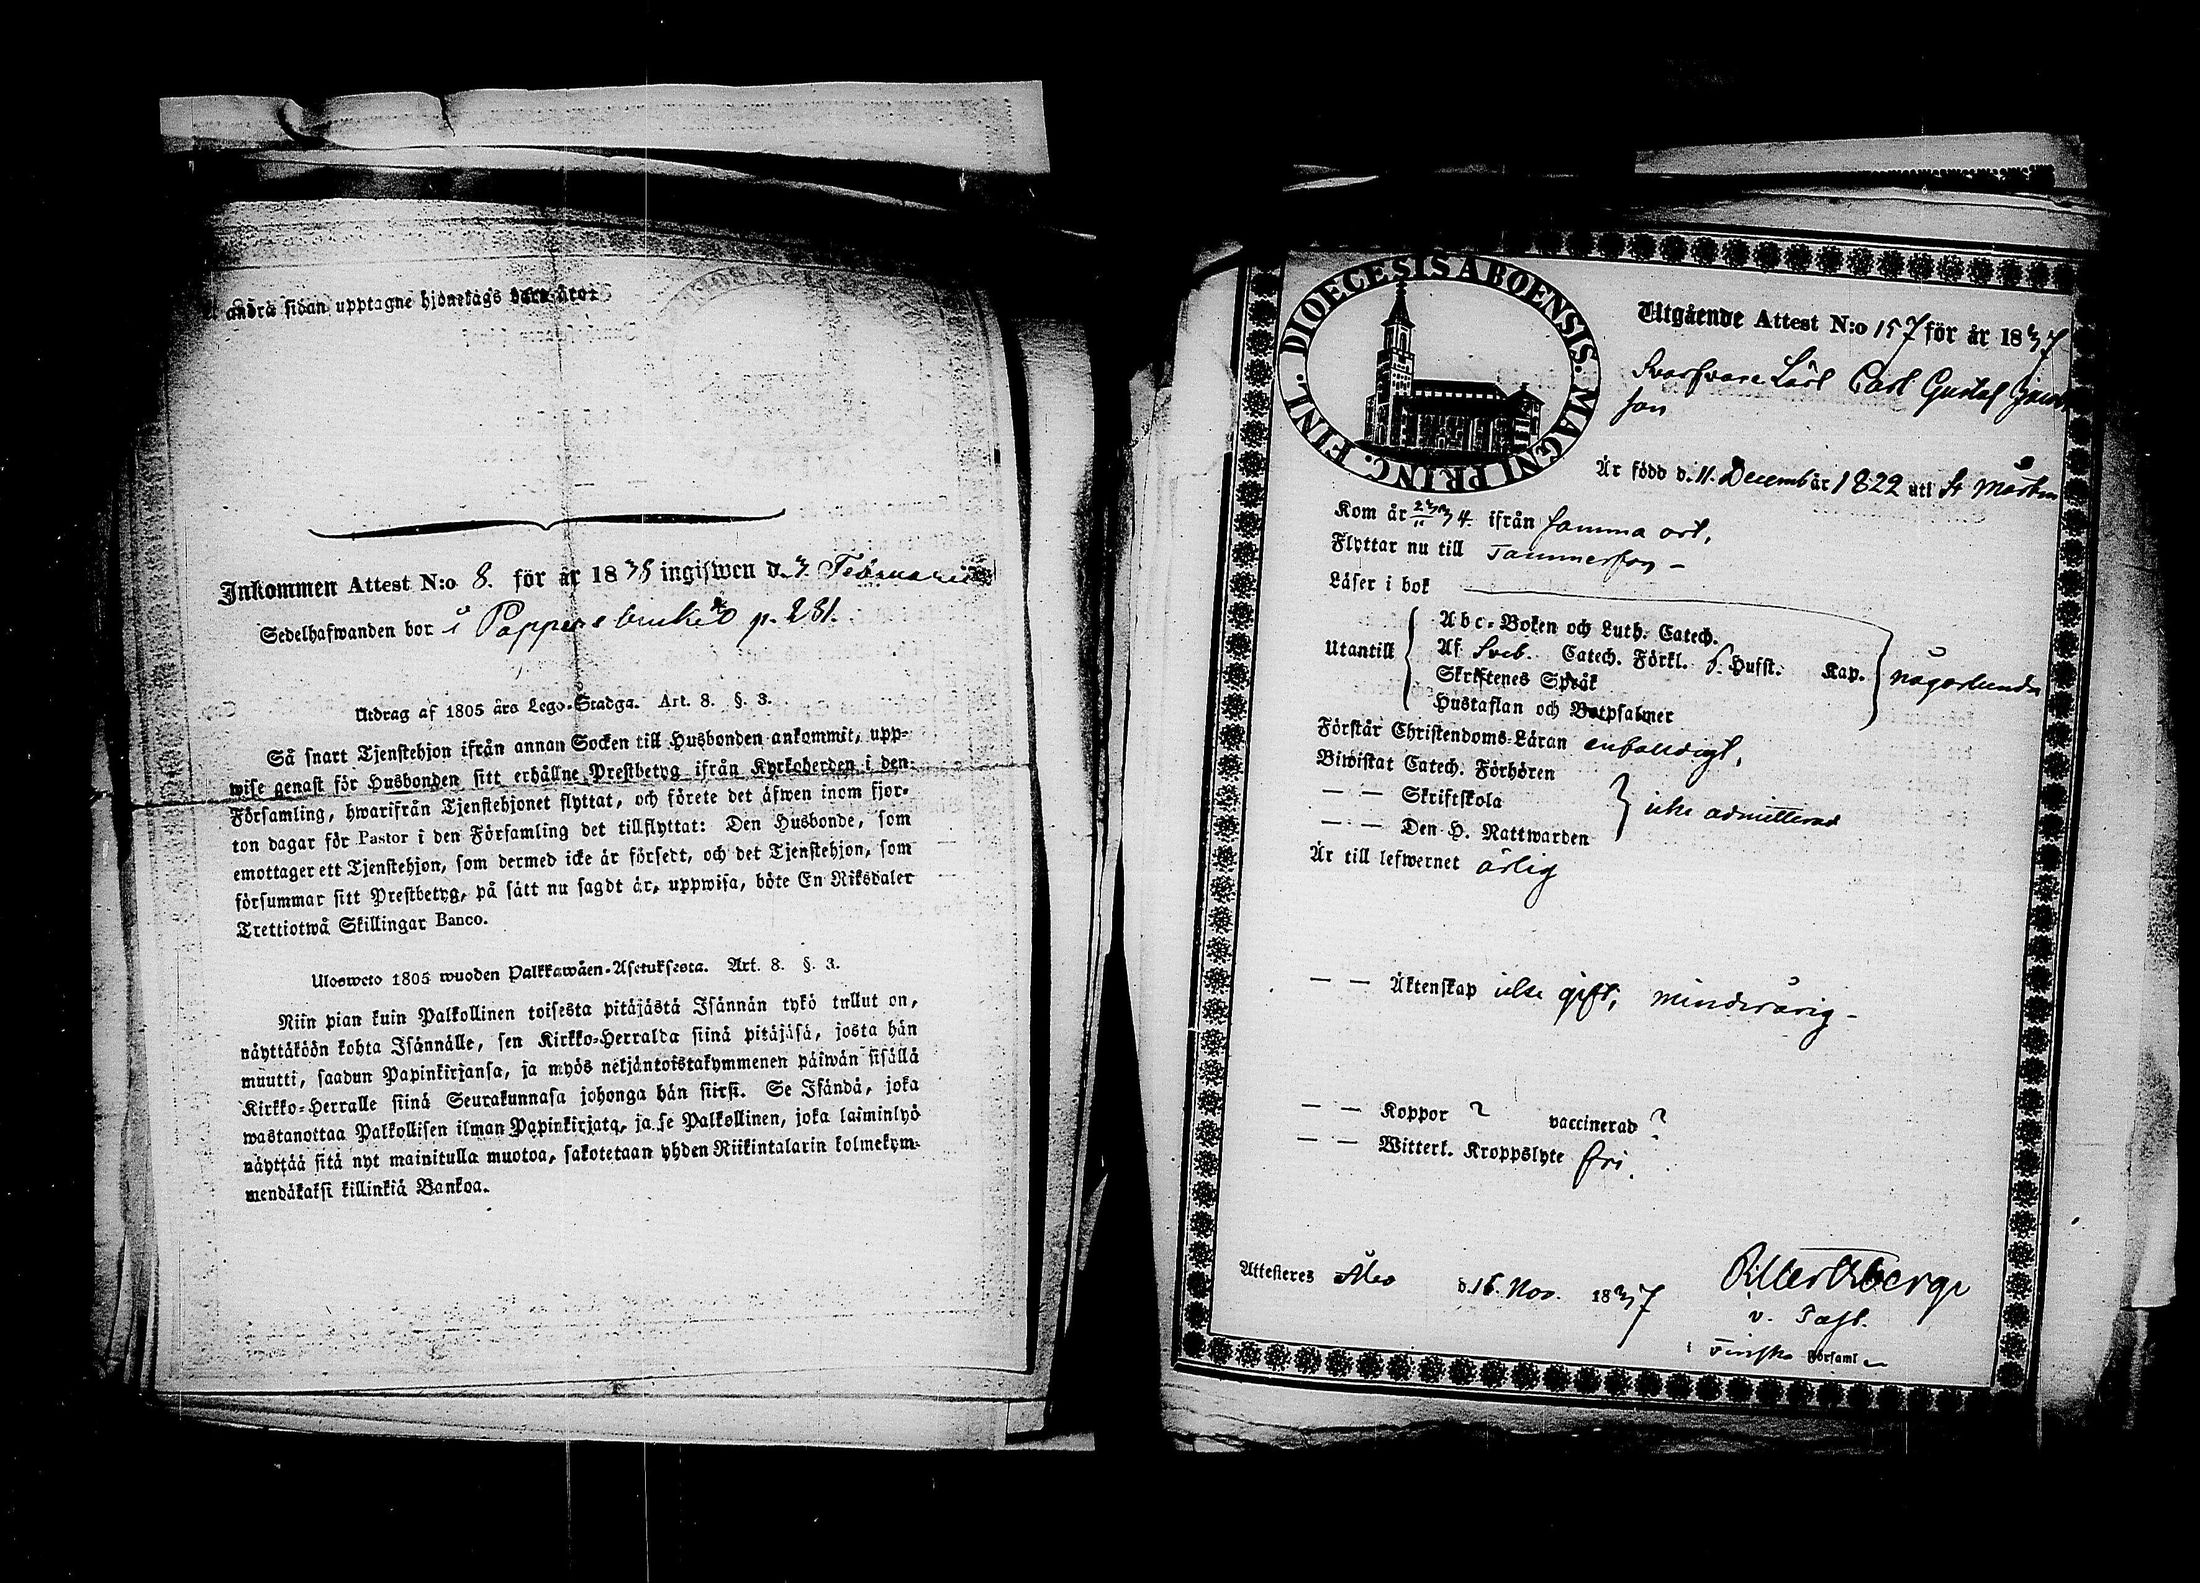 andra sidan upptagne hjonelags barn äro:
Inkommen Attest N:o 8. för år 1838 ingifwen d. 3. Februarii
Sedelhafwanden bor i Pappersbruket p. 281.
Utdrag af 1805 års Lego-Stadga. Art. 8. §. 3.
Så snart Tjenstehjon ifrån annan Socken till Husbonden ankommit, upp-
wise genast för Husbonden sitt erhållne Prestbetyg ifrån Kyrkoherden i den
Församling, hwarifrån Tjenstehjonet flyttat, och förete det äfwen inom fjor-
ton dagar för Pastor i den Församling det tillflyttat: Den Husbonde, som
emottager ett Tjenstehjon, som dermed icke är försedt, och det Tjenstehjon, som
försummar sitt Prestbetyg, på sätt nu sagdt är, uppwisa, böte En Riksdaler
Trettiotwå Skillingar Banco.
Ulosweto 1805 wuoden Palkkawäen-Asetuksesta. Art. 8. §. 3.
Niin pian kuin Palkollinen toisesta pitäjästä Isännän tykö tullut on,
näyttäköön kohta Isännälle, sen Kirkko-Herralda siinä pitäjäsä, josta hän
muutti, saadun Papinkirjansa, ja myös neljäntoistakymmenen päiwän sisällä
Kirkko-Herralle siinä Seurakunnasa johonga hän siirsi. Se Isändä, joka
wastanottaa Palkollisen ilman Papinkirjata, ja se Palkollinen, joka laiminlyö
näyttää sitä nyt mainitulla muotoa, sakotetaan yhden Riikintalarin kolmekym-
mendäkaksi killinkiä Bankoa.
DIOECESIS ABOENSIS. MAGNI PRINC. FINL.
Utgående Attest N:o 157 för år 1837
Carl Gustaf
son
Är född d. 11. Decemb år 1822 uti St Mårten
Kom år 23/11 34 ifrån samma ort,
Flyttar nu till Tammerfors –
Läser i bok
Abc-Boken och Luth. Catech.
Utantill Af Sveb. Catech. Förkl. S. Hufst. Kap. någorlunda
Skriftenes Språk
Hustaflan och Botpsalmer
Förstår Christendoms-Läran enfaldigt,
Biwistat Catech. Förhören
— — Skriftskola icke admitterad
— — Den H. Nattwarden
Är till lefwernet ärlig
— — Äktenskap icke gift, minderårig –
— — Koppor ? vaccinerad ?
— — Witterl. Kroppslyte fri.
Attesteras Åbo d. 16. Nov. 1837
v. Past.
i Finska Församl